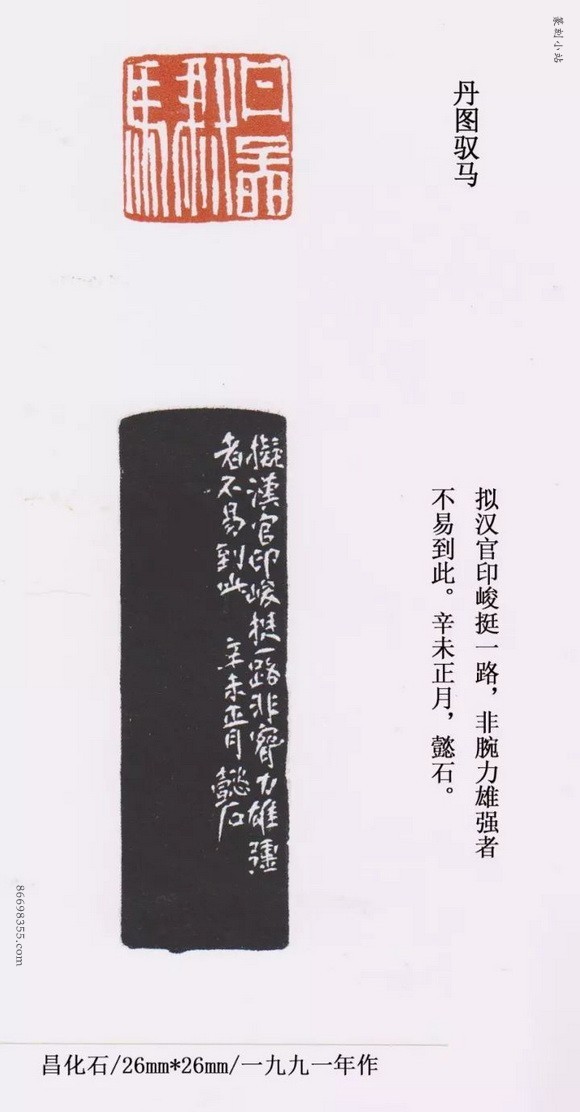 篆刻小站
丹图驭马
拟汉官印峻挺一路，非腕力雄强者
不易到此。辛未正月，懿石。
擬漢官印峻挺一路非腕力雄彊
者不易到此 辛未正月 懿石
86698355.com
昌化石/26mm*26mm/一九九一年作